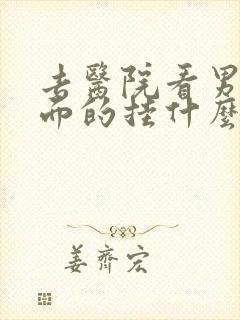 去醫院看男
而的挂什麼
姜齊宏